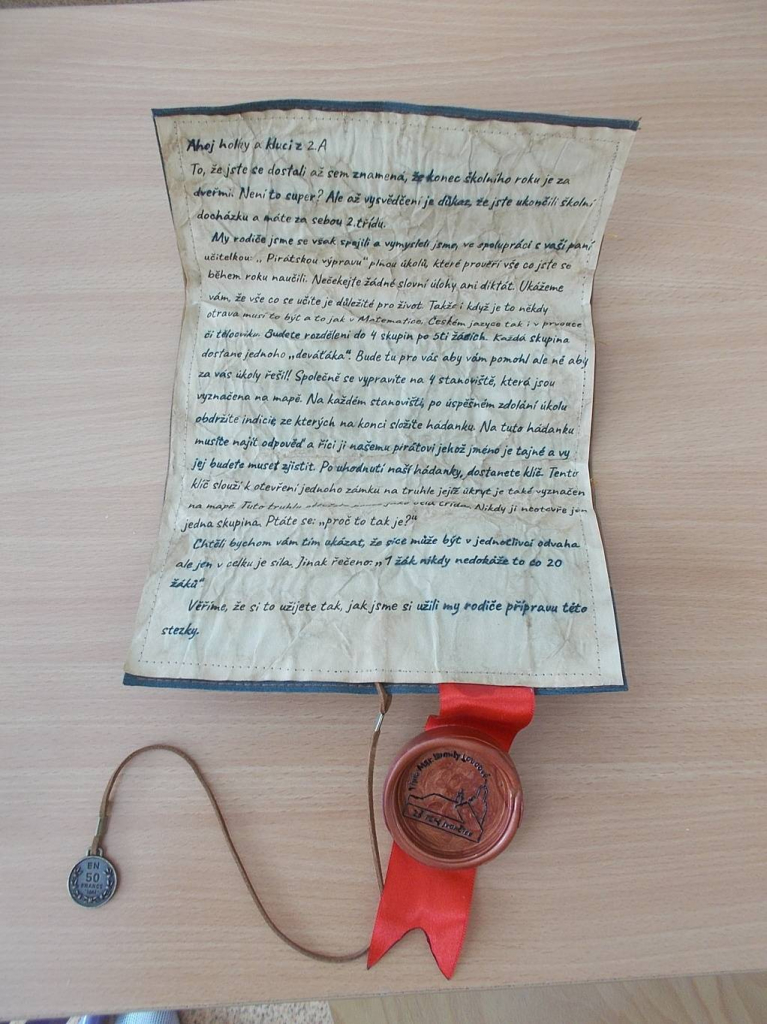 Ahoj holky a kluci z 2.A
To, že jste se dostali až sem znamená, že konec školního roku je za
dveřmi. Není to super? Ale až vysvědčení je důkaz, že jste ukončili školní
docházku a máte za sebou 2.třídu.
My rodiče jsme se však spojili a vymysleli jsme, ve spolupráci s vaší paní
učitelkou: „ Pirátskou výpravu" plnou úkolů, které prověří vše co jste se
během roku naučili. Nečekejte žádné slovní úlohy ani diktát. Ukážeme
vám, že vše co se učíte je důležité pro život. Takže i když je to někdy
otrava musí to být a to jak v Matematice, Českém jazyce tak i v prvouce
či tělocviku. Budete rozděleni do 4 skupin po 5ti žácích. Každá skupina
dostane jednoho „deváťáka". Bude tu pro vás aby vám pomohl ale né aby
za vás úkoly řešil! Společně se vypravíte na 4 stanoviště, která jsou
vyznačena na mapě. Na každém stanovišti, po úspěšném zdolání úkolu
obdržíte indicie, ze kterých na konci složíte hádanku. Na tuto hádanku
musíte najít odpověď a říci ji našemu pirátovi jehož jméno je tajné a vy
jej budete muset zjistit. Po uhodnutí naší hádanky, dostanete klíč. Tento
klíč slouží k otevření jednoho zámku na truhle jejíž úkryt je také vyznačen
na mapě. Tuto truhlu celá třída. Nikdy ji neotevře jen
jedna skupina. Ptáte se: „proč to tak je?"
Chtěli bychom vám tím ukázat, že sice může být v jednotlivci odvaha
ale jen v celku je síla. Jinak řečeno: „ 1 žák nikdy nedokáže to co 20
žáků"
Věříme, že si to užijete tak, jak jsme si užili my rodiče přípravu této
stezky.
EN
50
FRANCS